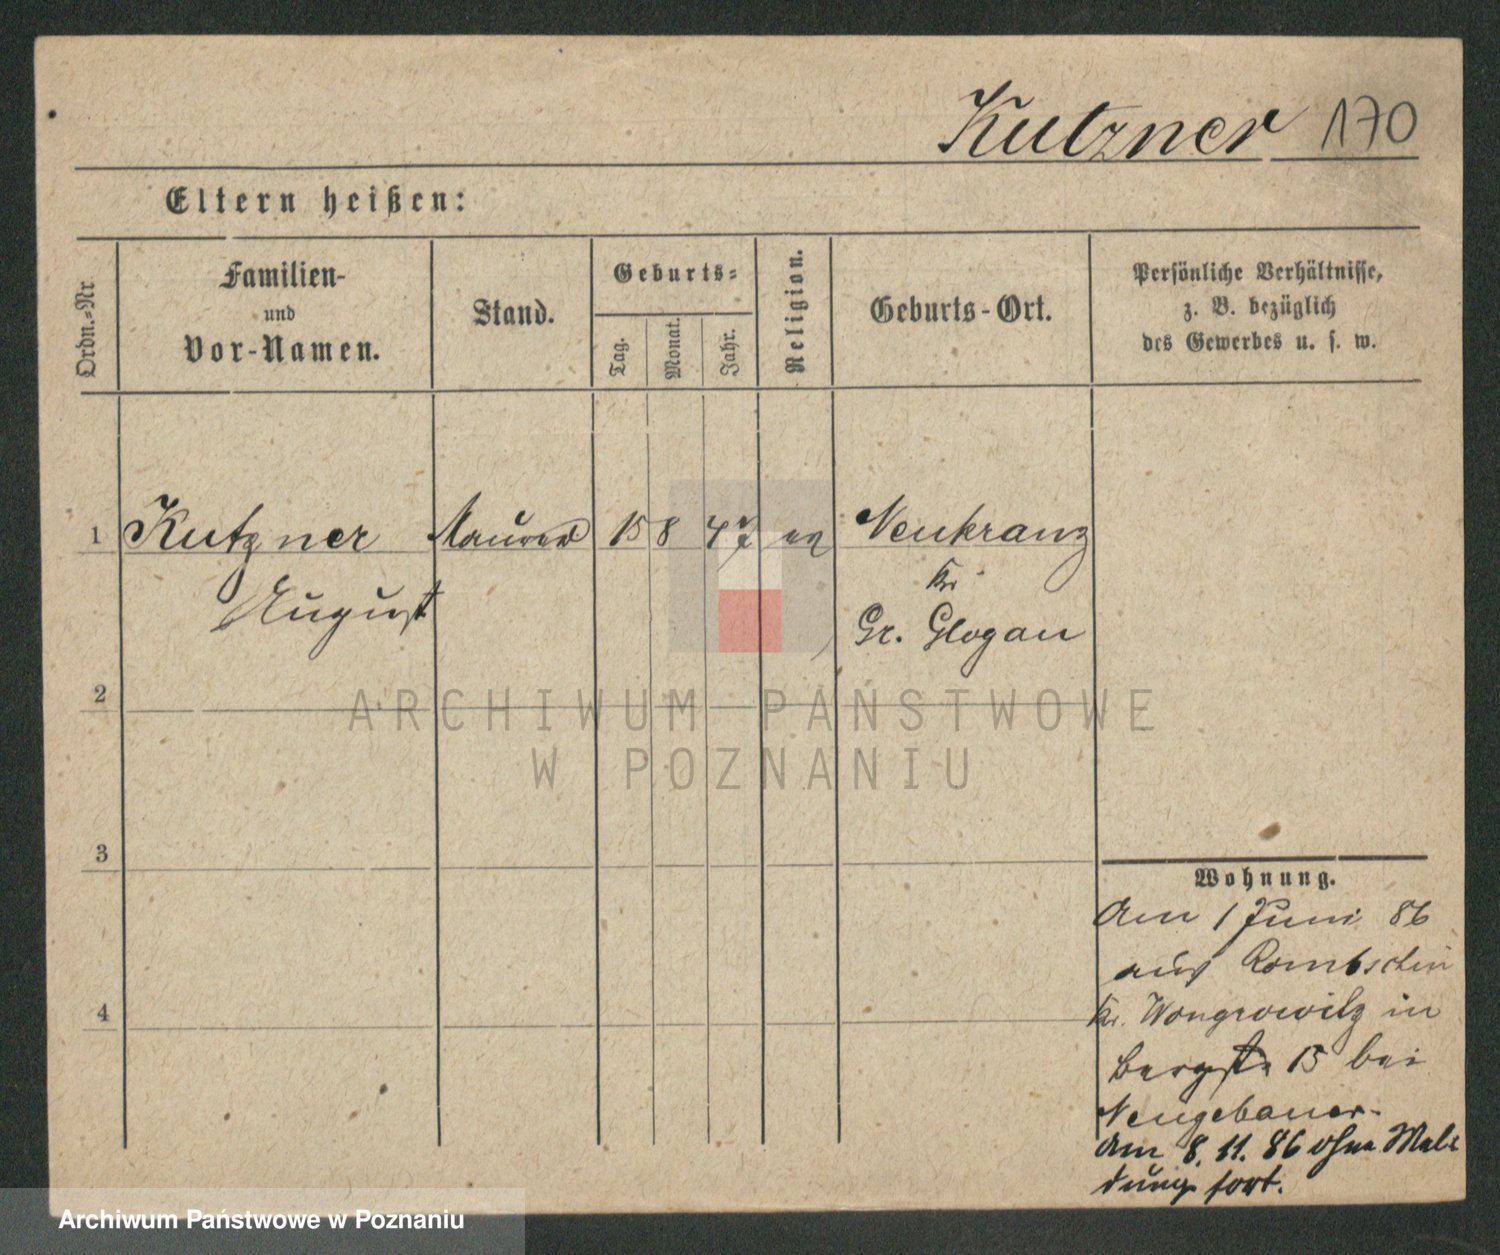 Kutzner 170
Eltern heißen:
Ordn.-Nr
Familien-
und
Vor-Namen.
Stand.
Geburts-
Tag.
Monat.
Jahr.
Religion.
Geburts-Ort.
Persönliche Verhältnisse,
z. B. bezüglich
des Gewerbes u. s. w.
1 Kutzner Maurer 15 8 47 ev Neukranz
August
Kr.
Gr. Glogau
2
3
4
Wohnung.
Am 1 Juni 86
aus Rombschin
Kr. Wongrowitz in
Bergstr 15 bei
Neugebauer.
Am 8. 11. 86 ohne Mel-
dung fort.
ARCHIWUM PAŃSTWOWE
W POZNANIU
Archiwum Państwowe w Poznaniu